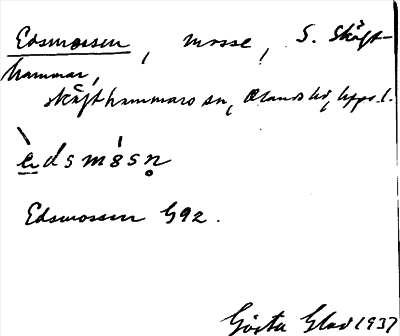 Edsmossen, mosse, S. Skäft-
hammar,
Skäfthammars sn, Olands hd, Upps. l.
èdsmósn̥
Edsmossen G92.
Gösta Glad 1937